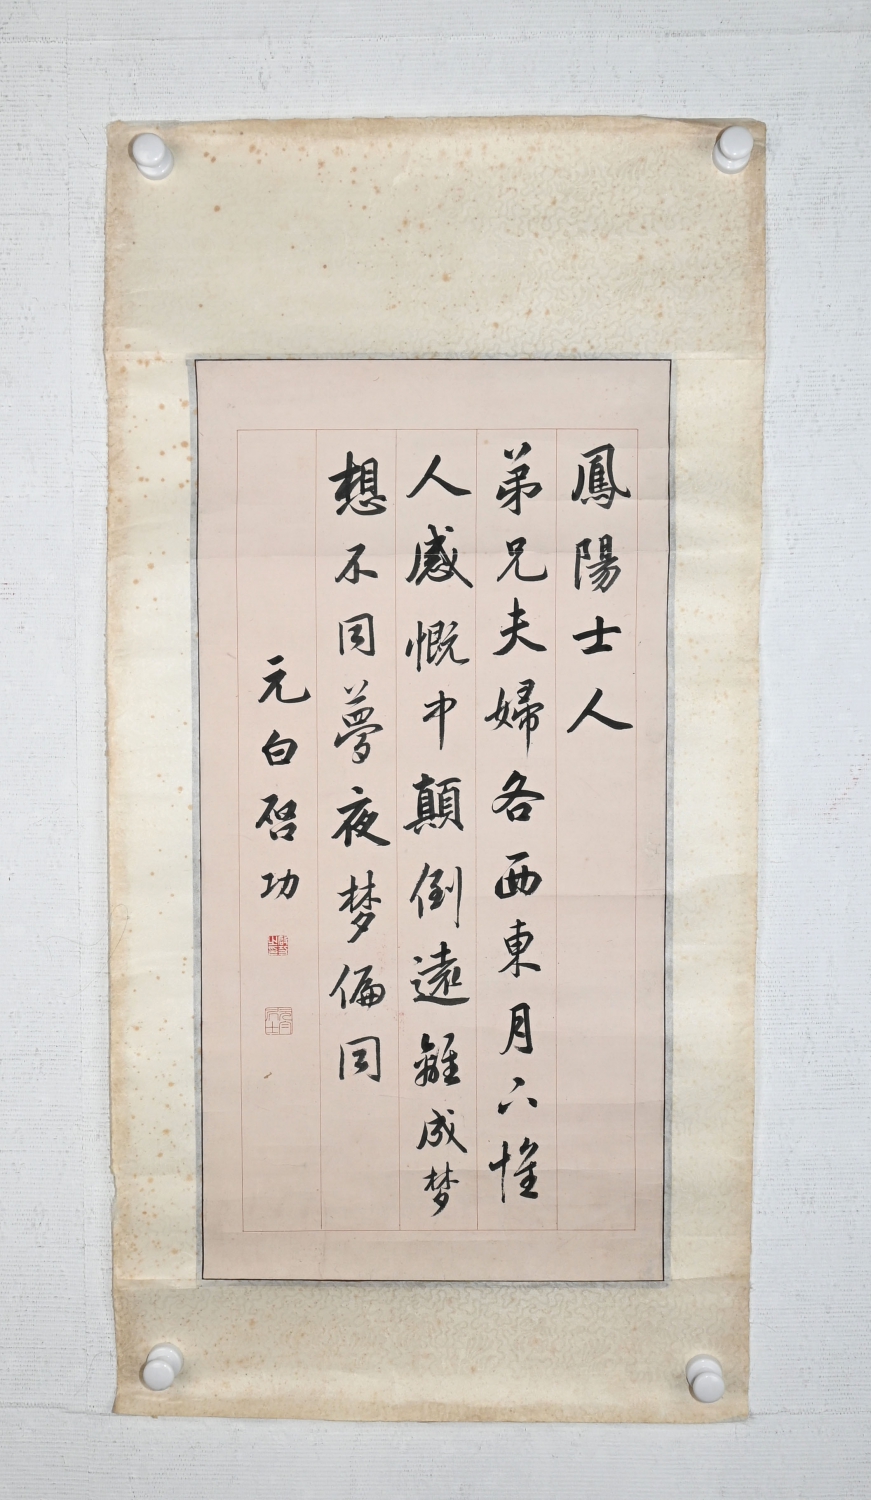 鳳陽士人
弟兄夫婦各西東月下惟
人感慨中顛倒遠離成梦
想不同夢夜梦偏同
元白启功